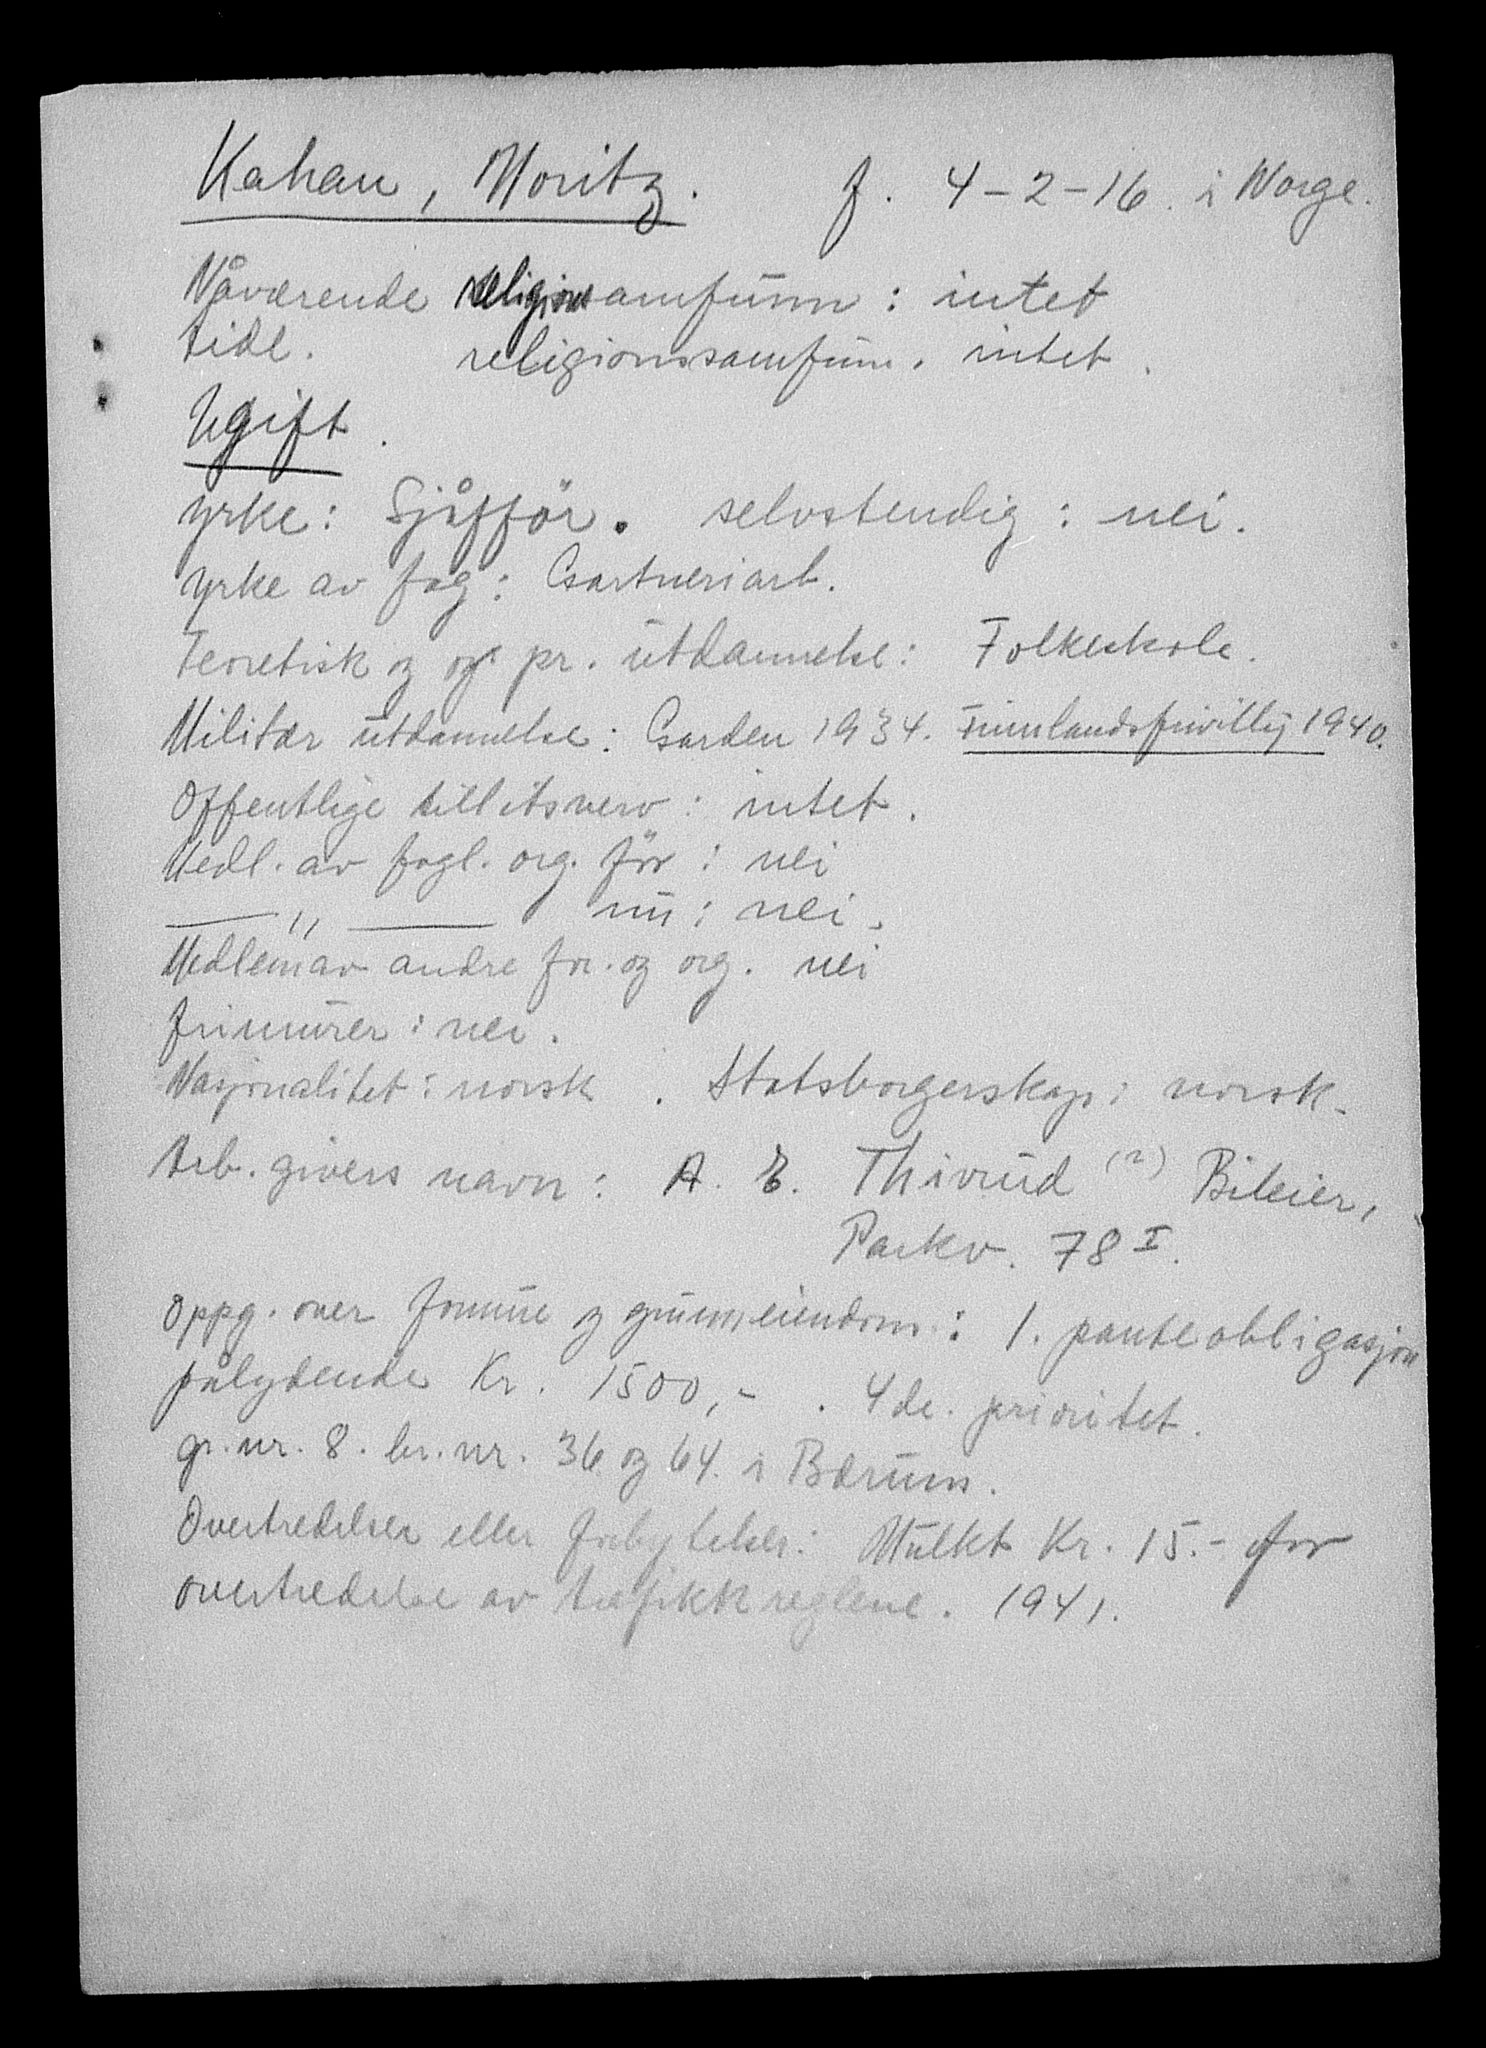 Kahan, Moritz. f. 4-2-16. i Norge.
Nåværende religionsamfunn: intet
tidl. religionssamfunn. intet.
Ugift.
yrke: Sjåfför. selvstendig: nei.
yrke av fag: Gartneriarb.
Teoretisk og pr. utdannelse: Folkeskole.
Militær utdannelse: Garden 1934. Finnlandsfrivillig 1940.
Offentlige tillitsverv: intet.
Medl. av fagl. org. för: nei
—— " —— nu: nei.
Medlem av andre for. og org. nei
frimurer: nei.
Nasjonalitet: norsk. Statsborgerskap: norsk.
Arb. givers navn: A. E. Thivrud (?) Bileier,
Parkv. 78 I.
Oppg. over formue og grunneiendom: 1. panteobligasjon
pålydende Kr. 1500,-. 4de. prioritet.
gr. nr. 8. br. nr. 36 og 64. i Bærum.
Overtredelser eller forbrytelser: Mulkt Kr. 15.- for
overtredelse av trafikkreglene. 1941.